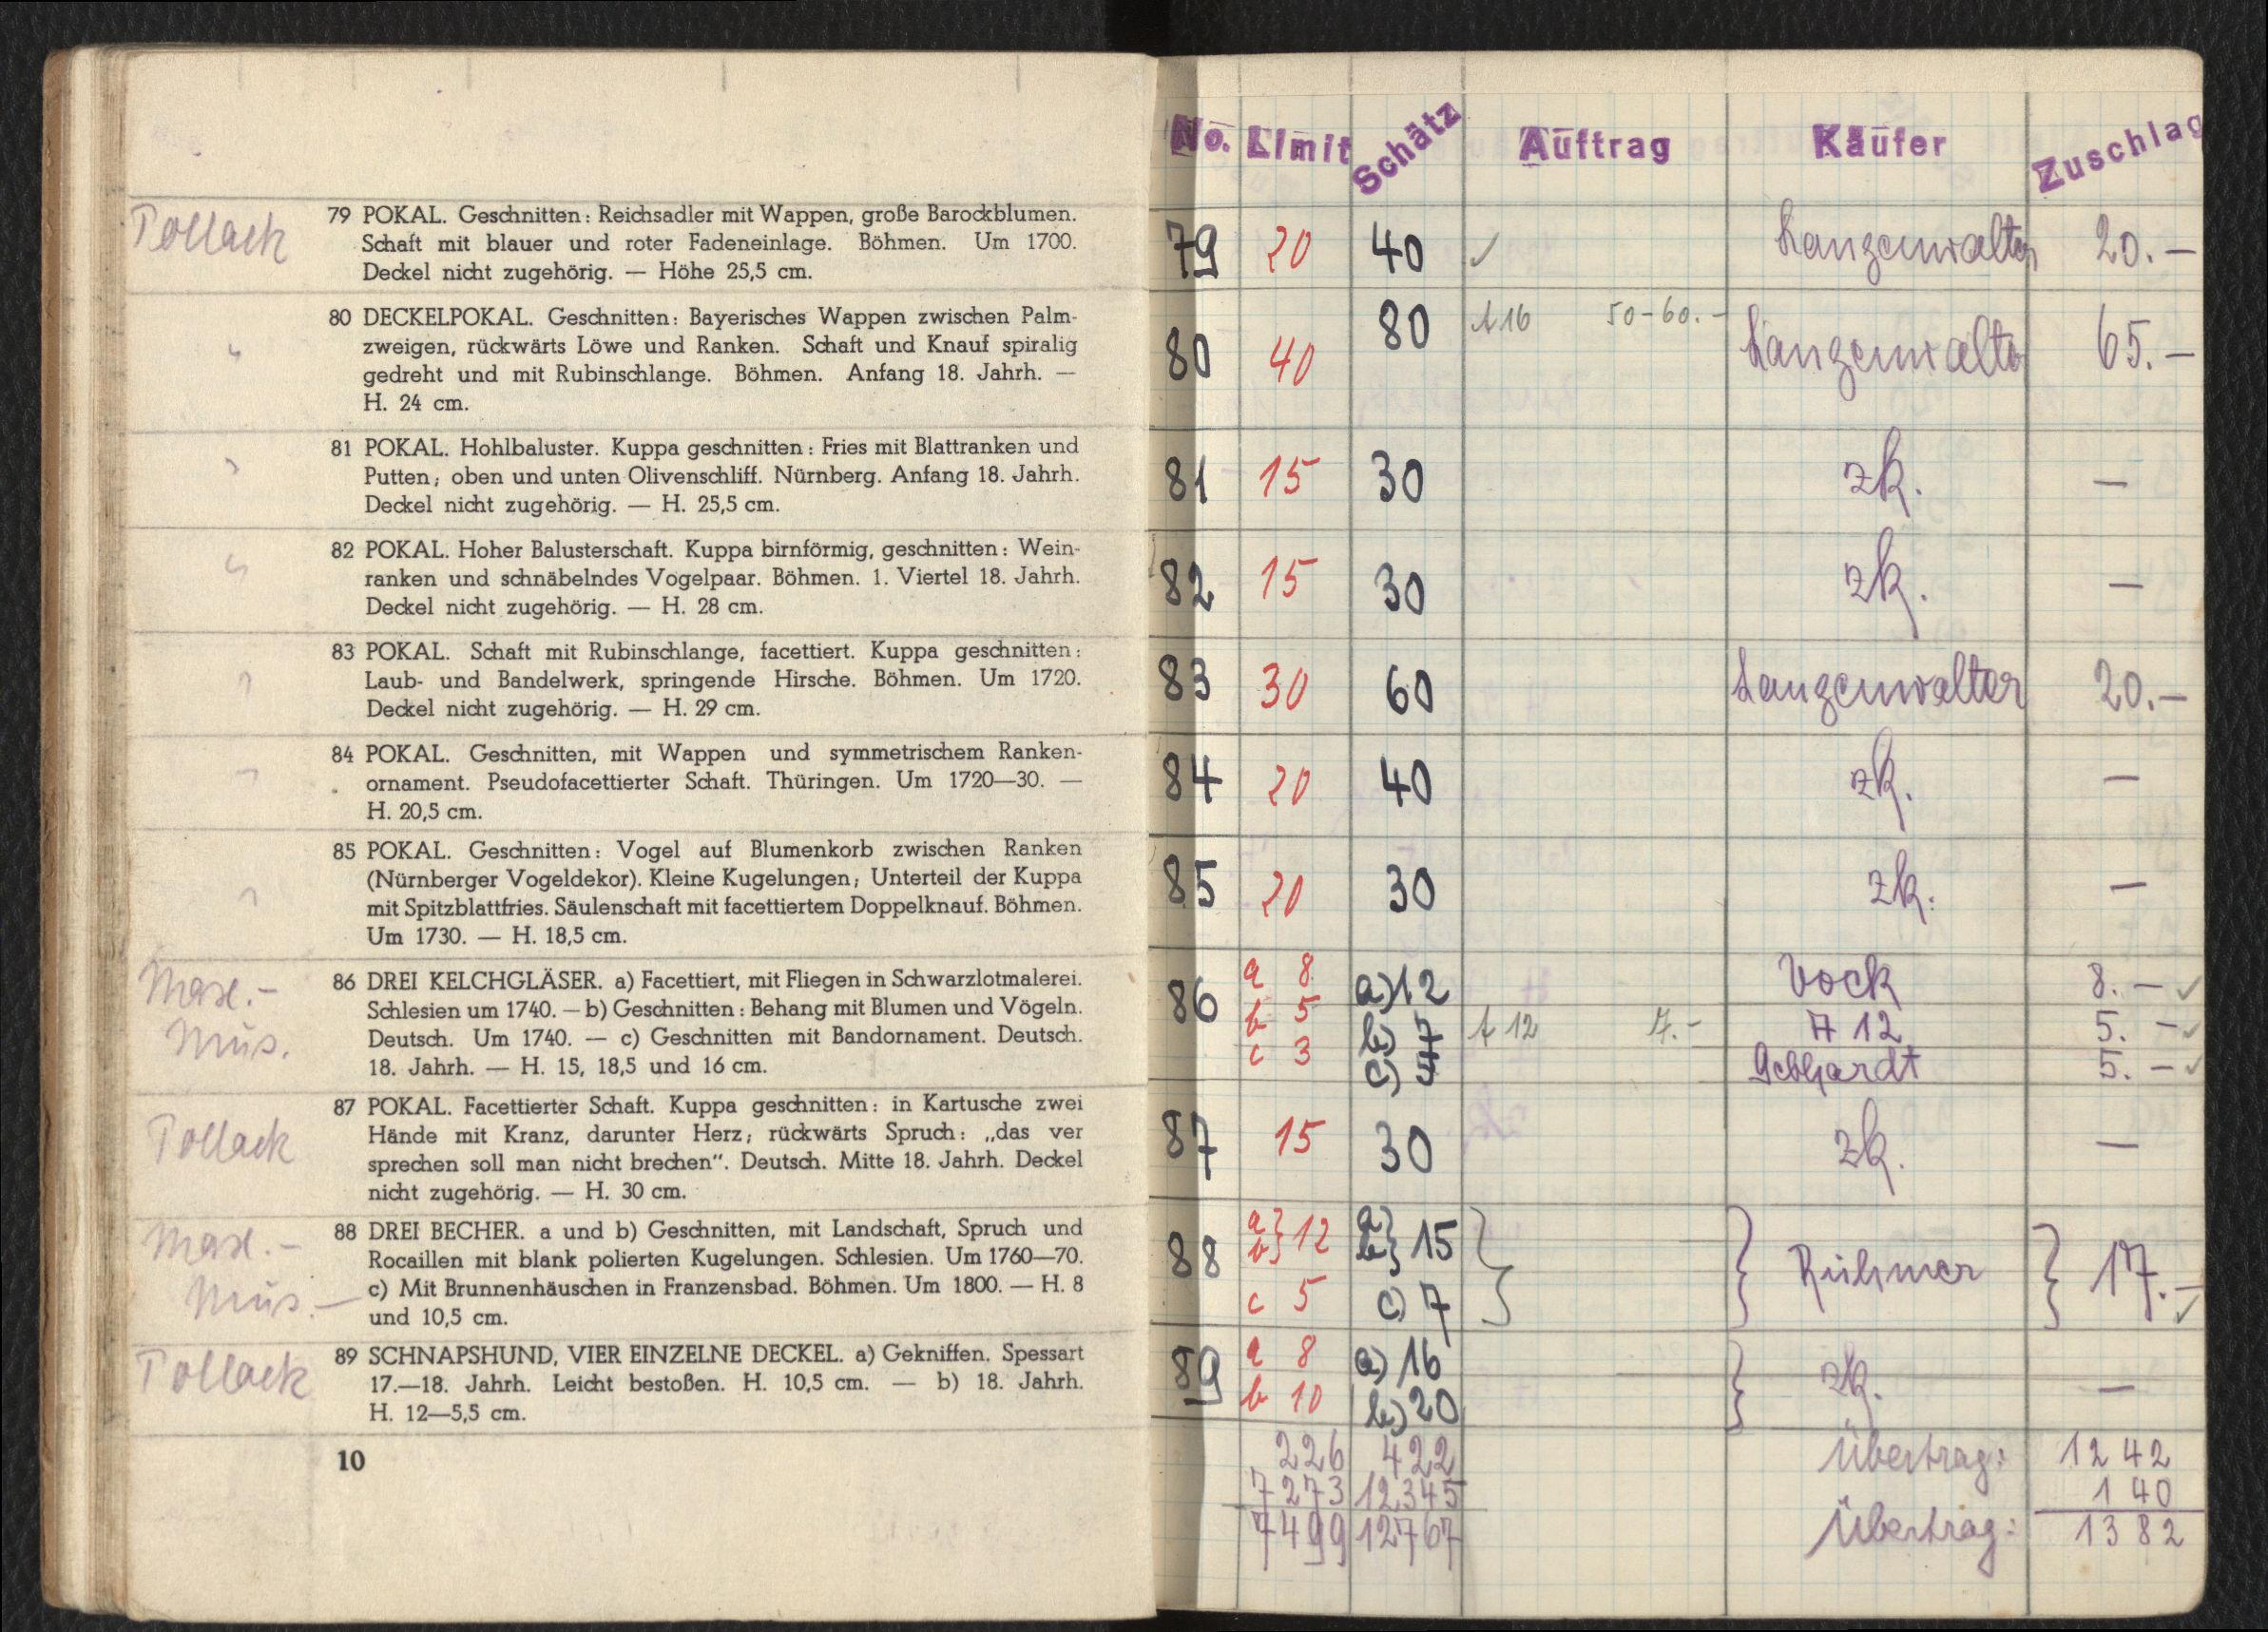 79 POKAL. Geschnitten: Reichsadler mit Wappen, große Barockblumen.
Pollack
Schaft mit blauer und roter Fadeneinlage. Böhmen. Um 1700.
Deckel nicht zugehörig. — Höhe 25,5 cm.
80 DECKELPOKAL. Geschnitten: Bayerisches Wappen zwischen Palm-
zweigen, rückwärts Löwe und Ranken. Schaft und Knauf spiralig
gedreht und mit Rubinschlange. Böhmen. Anfang 18. Jahrh. —
H. 24 cm.
81 POKAL. Hohlbaluster. Kuppa geschnitten: Fries mit Blattranken und
Putten; oben und unten Olivenschliff. Nürnberg. Anfang 18. Jahrh.
Deckel nicht zugehörig. — H. 25,5 cm.
82 POKAL. Hoher Balusterschaft. Kuppa birnförmig, geschnitten: Wein-
ranken und schnäbelndes Vogelpaar. Böhmen. 1. Viertel 18. Jahrh.
Deckel nicht zugehörig. — H. 28 cm.
83 POKAL. Schaft mit Rubinschlange, facettiert. Kuppa geschnitten:
Laub- und Bandelwerk, springende Hirsche. Böhmen. Um 1720.
Deckel nicht zugehörig. — H. 29 cm.
84 POKAL. Geschnitten, mit Wappen und symmetrischem Ranken-
ornament. Pseudofacettierter Schaft. Thüringen. Um 1720—30. —
H. 20,5 cm.
85 POKAL. Geschnitten: Vogel auf Blumenkorb zwischen Ranken
(Nürnberger Vogeldekor). Kleine Kugelungen; Unterteil der Kuppa
mit Spitzblattfries. Säulenschaft mit facettiertem Doppelknauf. Böhmen.
Um 1730. — H. 18,5 cm.
Max.-
86 DREI KELCHGLÄSER. a) Facettiert, mit Fliegen in Schwarzlotmalerei.
Schlesien um 1740. — b) Geschnitten: Behang mit Blumen und Vögeln.
Mus.
Deutsch. Um 1740. — c) Geschnitten mit Bandornament. Deutsch.
18. Jahrh. — H. 15, 18,5 und 16 cm.
87 POKAL. Facettierter Schaft. Kuppa geschnitten: in Kartusche zwei
Pollack
Hände mit Kranz, darunter Herz; rückwärts Spruch: „das ver
sprechen soll man nicht brechen“. Deutsch. Mitte 18. Jahrh. Deckel
nicht zugehörig. — H. 30 cm.
Max.-
88 DREI BECHER. a und b) Geschnitten, mit Landschaft, Spruch und
Rocaillen mit blank polierten Kugelungen. Schlesien. Um 1760—70.
Mus.—
c) Mit Brunnenhäuschen in Franzensbad. Böhmen. Um 1800. — H. 8
und 10,5 cm.
Pollack
89 SCHNAPSHUND, VIER EINZELNE DECKEL. a) Gekniffen. Spessart
17.—18. Jahrh. Leicht bestoßen. H. 10,5 cm. — b) 18. Jahrh.
H. 12—5,5 cm.
10
No. Limit Schätz Auftrag Käufer Zuschlag
79 20 40 ✓ Langenwalter 20.—
80 40 80 A 16 50-60.- Langenwalter 65.—
81 15 30 zk. —
82 15 30 zk. —
83 30 60 Langenwalter 20.—
84 20 40 zk. —
85 20 30 zk. —
86 a 8 a) 12 Vock 8.— ✓
b 5 b) 7 A 12 7.- A 12 5.— ✓
c 3 c) Gebhardt 5.— ✓
87 15 30 zk. —
88 a b } 12 a) b) } 15 Rühmer 17.— ✓
c 5 c) 7
89 a 8 a) 16 zk. —
b 10 b) 20
226 422 Übertrag: 1242
7273 12345 140
7499 12767 Übertrag: 1382